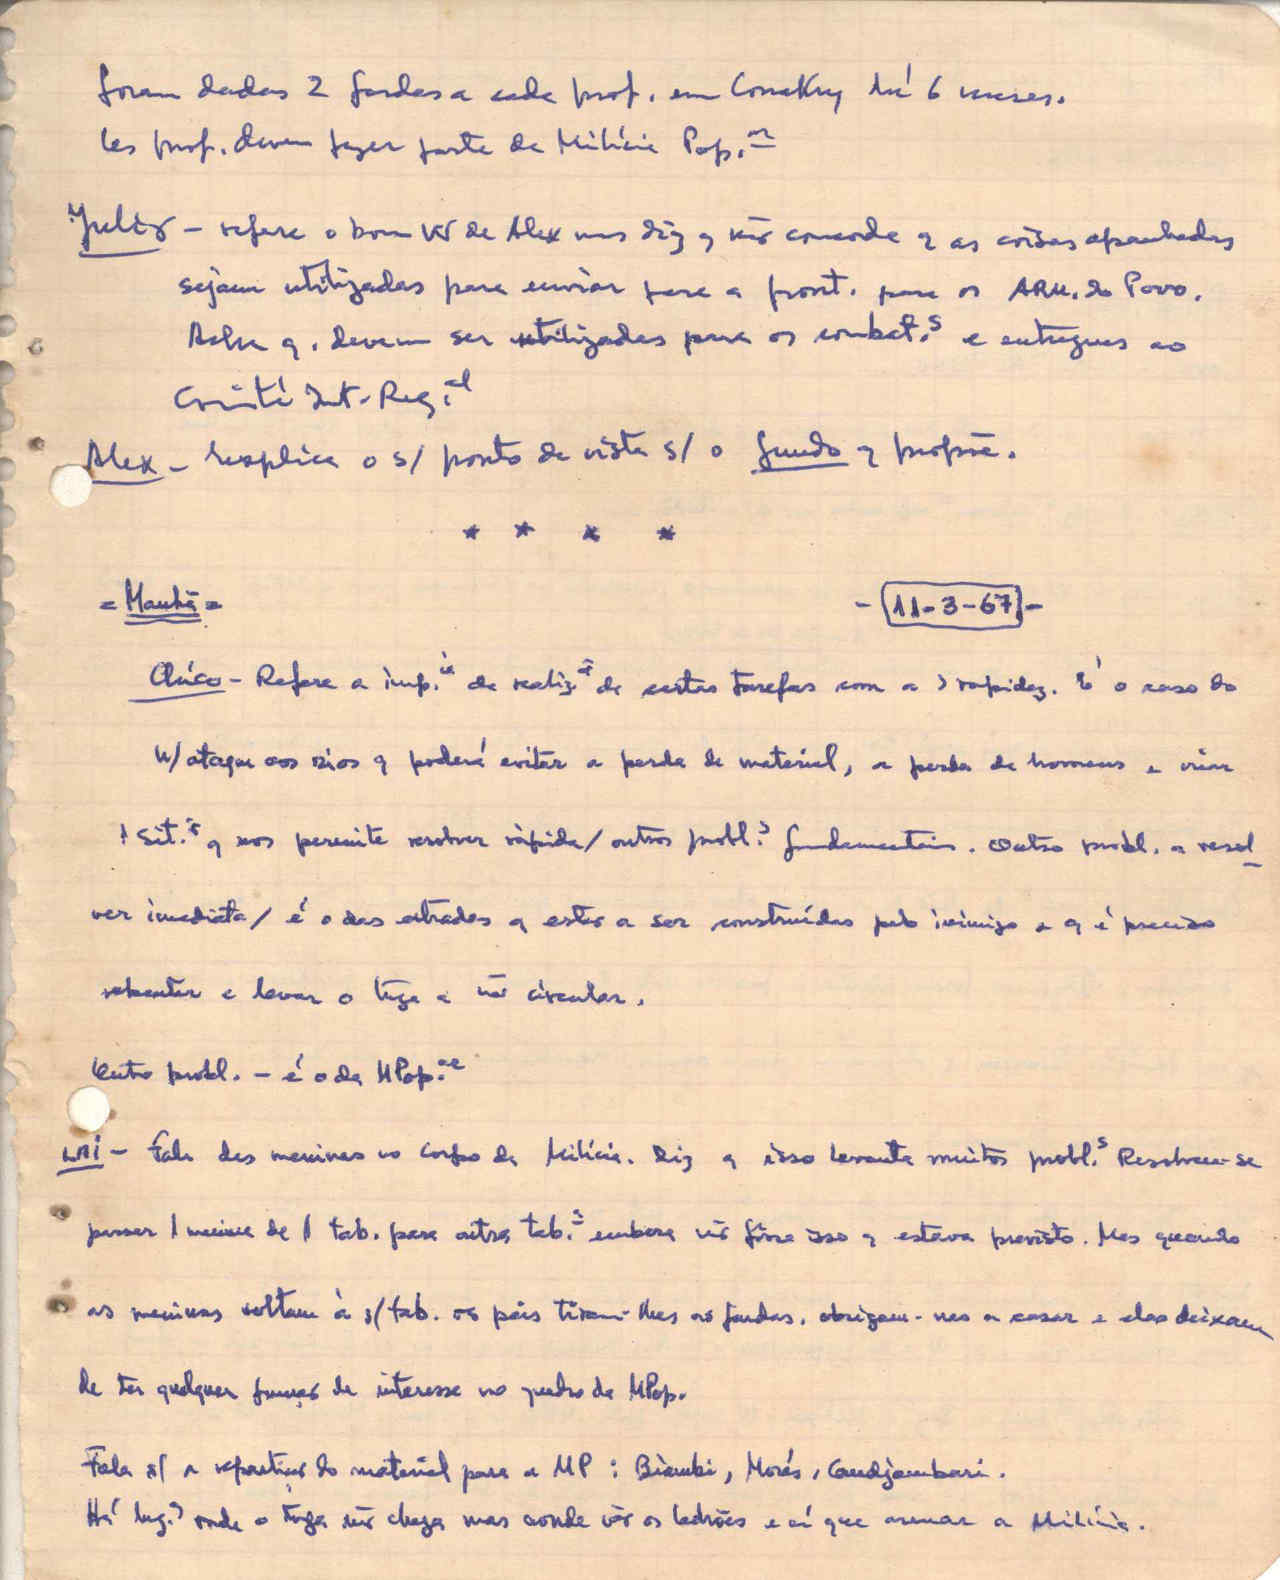 foram dadas 2 fardas a cada prof. em Conakry há 6 meses.
Os prof. devem fazer parte da Milícia Pop.ar
Julião – refere o bom W de Alex mas diz q não concorda q as coisas apanhadas
sejam utilizadas para enviar para a front. para os ARM. do Povo.
Acha q. devem ser utilizadas para os combat.s e entregues ao
Comité Int-Reg.al
Alex – Explica o s/ ponto de vista s/ o fundo q propõe.
* * * *
= Manhã =
- 11-3-67 -
Chico – Refere a imp.ia de realiz.ão de certas tarefas com a > rapidez. É o caso do
n/ ataque aos rios q poderá evitar a perda de material, a perda de homens e criar
1 sit.ão q nos permite resolver ràpida/ outros probl.s fundamentais. Outro probl. a resol-
ver imediata/ é o das estradas q estão a ser construídas pelo inimigo e q é preciso
rebentar e levar o tuga a não circular.
Outro probl. – é o da MPop.ar
– Fala das meninas no corpo da Milícia. Diz q isso levanta muitos probl.s Resolveu-se
passar 1 menina de 1 tab. para outra tab.s embora não fôsse isso q estava previsto. Mas quando
as meninas voltam à s/ tab. os pais tiram-lhes as fardas, obrigam-nas a casar e elas deixam
de ter qualquer função de interesse no quadro da MPop.
Fala s/ a repartição do material para a MP : Biambi, Morés, Candjambari.
Há lug.s onde o tuga não chega mas aonde vão os ladrões e aí que armar a Milícia.